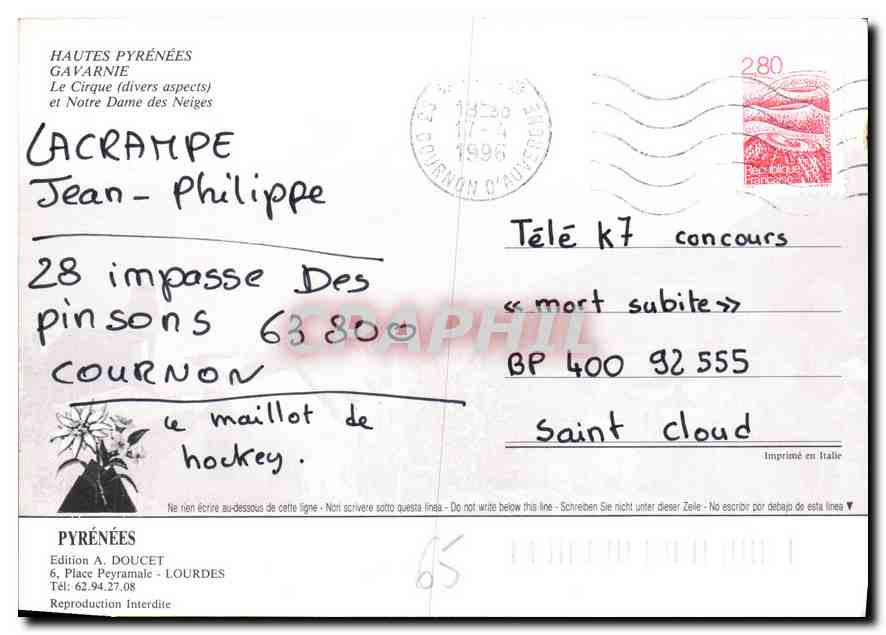 HAUTES PYRÉNÉES
GAVARNIE
Le Cirque (divers aspects)
et Notre Dame des Neiges
LACRAMPE
Jean-Philippe
28 impasse Des
pinsons 63800
COURNON
le maillot de
hockey.
18
17-4
1996
COURNON D'AUVERGNE
2,80
République
Française
Télé K7 concours
« mort subite »
BP 400 92 555
Saint Cloud
Imprimé en Italie
CPARHIL
Ne rien écrire au-dessous de cette ligne - Non scrivere sotto questa linea - Do not write below this line - Schreiben Sie nicht unter dieser Zeile - No escribir por debajo de esta linea ▼
PYRÉNÉES
Edition A. DOUCET
6, Place Peyramale - LOURDES
Tél: 62.94.27.08
Reproduction Interdite
65